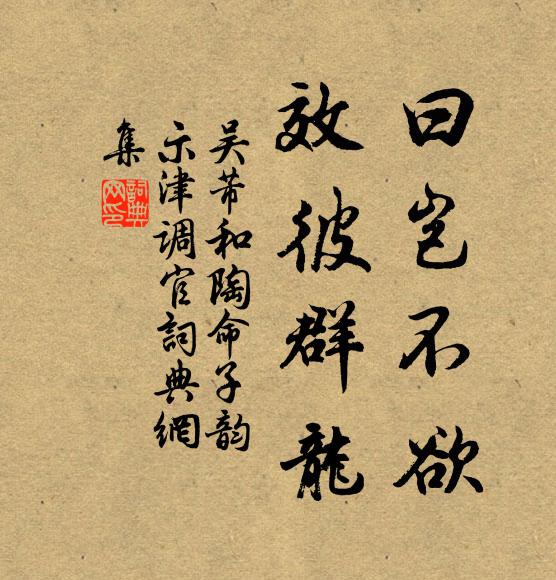 曰岂不欲
效彼群龍
吴芾和陶命子韵
示津调官詞典網
集
詞典网印